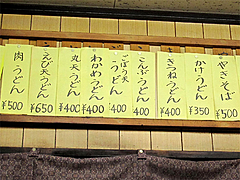 やきそば
¥500
かけうどん
¥350
きつねうどん
¥400
こんぶうどん
400
ごぼう天うどん
400
わかめうどん
¥400
丸天うどん
¥400
えび天うどん
¥650
肉うどん
¥500